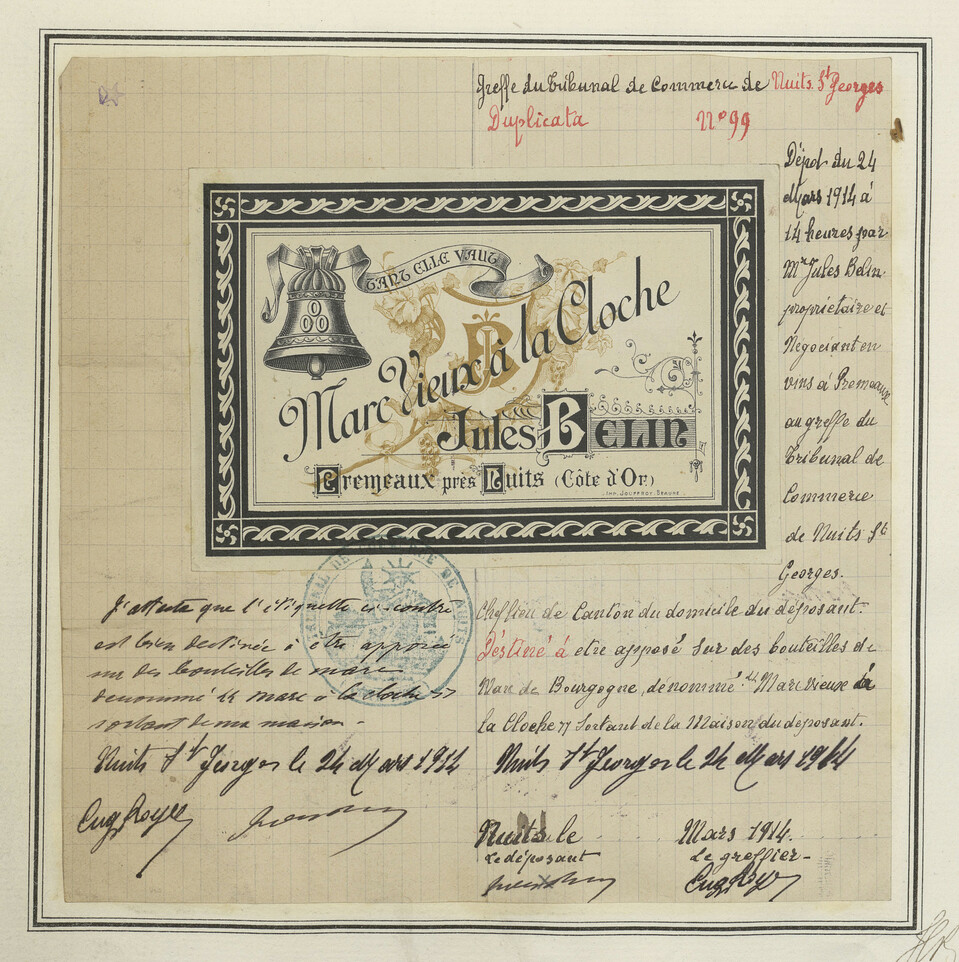 Greffe du Tribunal de Commerce de Nuits St Georges
Duplicata N° 99
Dépot du 24
Mars 1914 à
14 heures par
Mr Jules Belin
propriétaire et
Negociant en
vins à Premeaux
au greffe du
Tribunal de
Commerce
de Nuits St
Georges.
TANT ELLE VAUT
Marc Vieux à la Cloche
JB
Jules Belin
Premeaux près Nuits (Côte d'Or)
IMP. JOUFFROY. BEAUNE
TRIBUNAL DE COMMERCE DE NUITS
J'atteste que l'étiquette ci-contre
est bien destinée à être apposée
sur des bouteilles de marc
denommé "marc à la cloche"
sortant de ma maison.
Nuits St Georges le 24 Mars 1914
Eug Royer
Chef lieu de Canton du domicile du déposant.
Déstiné à etre apposé sur des bouteilles de
Marc de Bourgogne, dénommé "Marc vieux à
la Cloche" Sortant de la Maison du déposant.
Nuits St Georges le 24 Mars 1914
Nuits le Mars 1914.
Le déposant Le greffier
Eug Royer